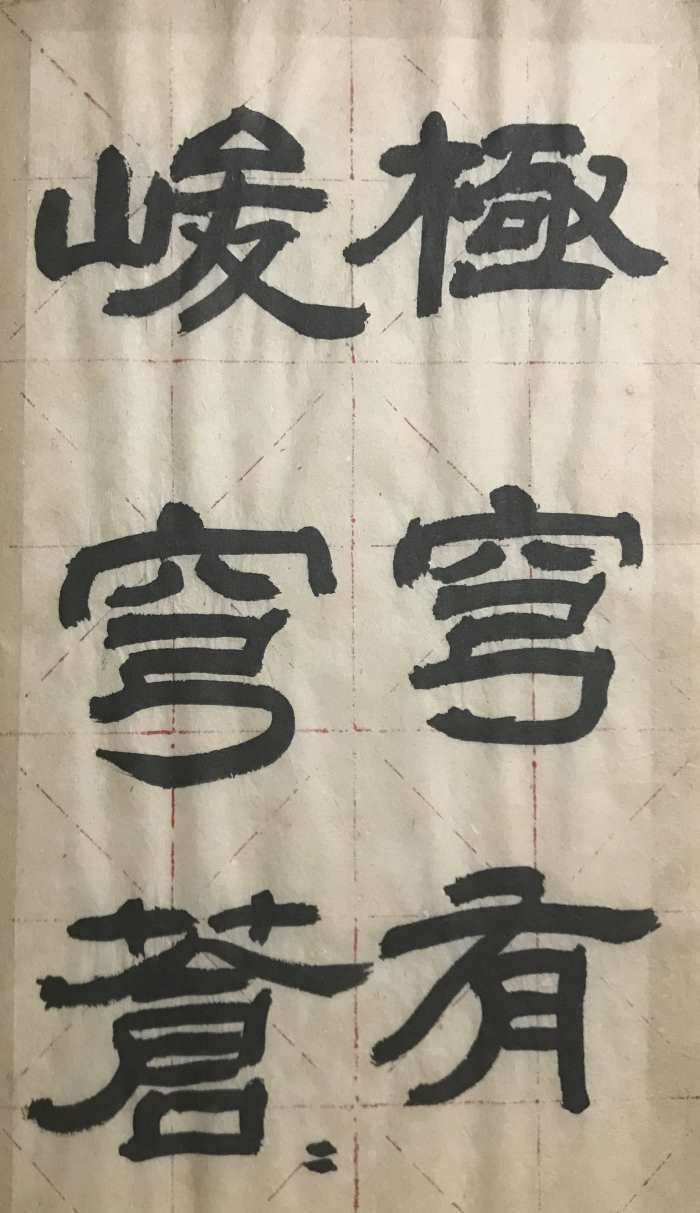 極穹有
峻穹蒼〻